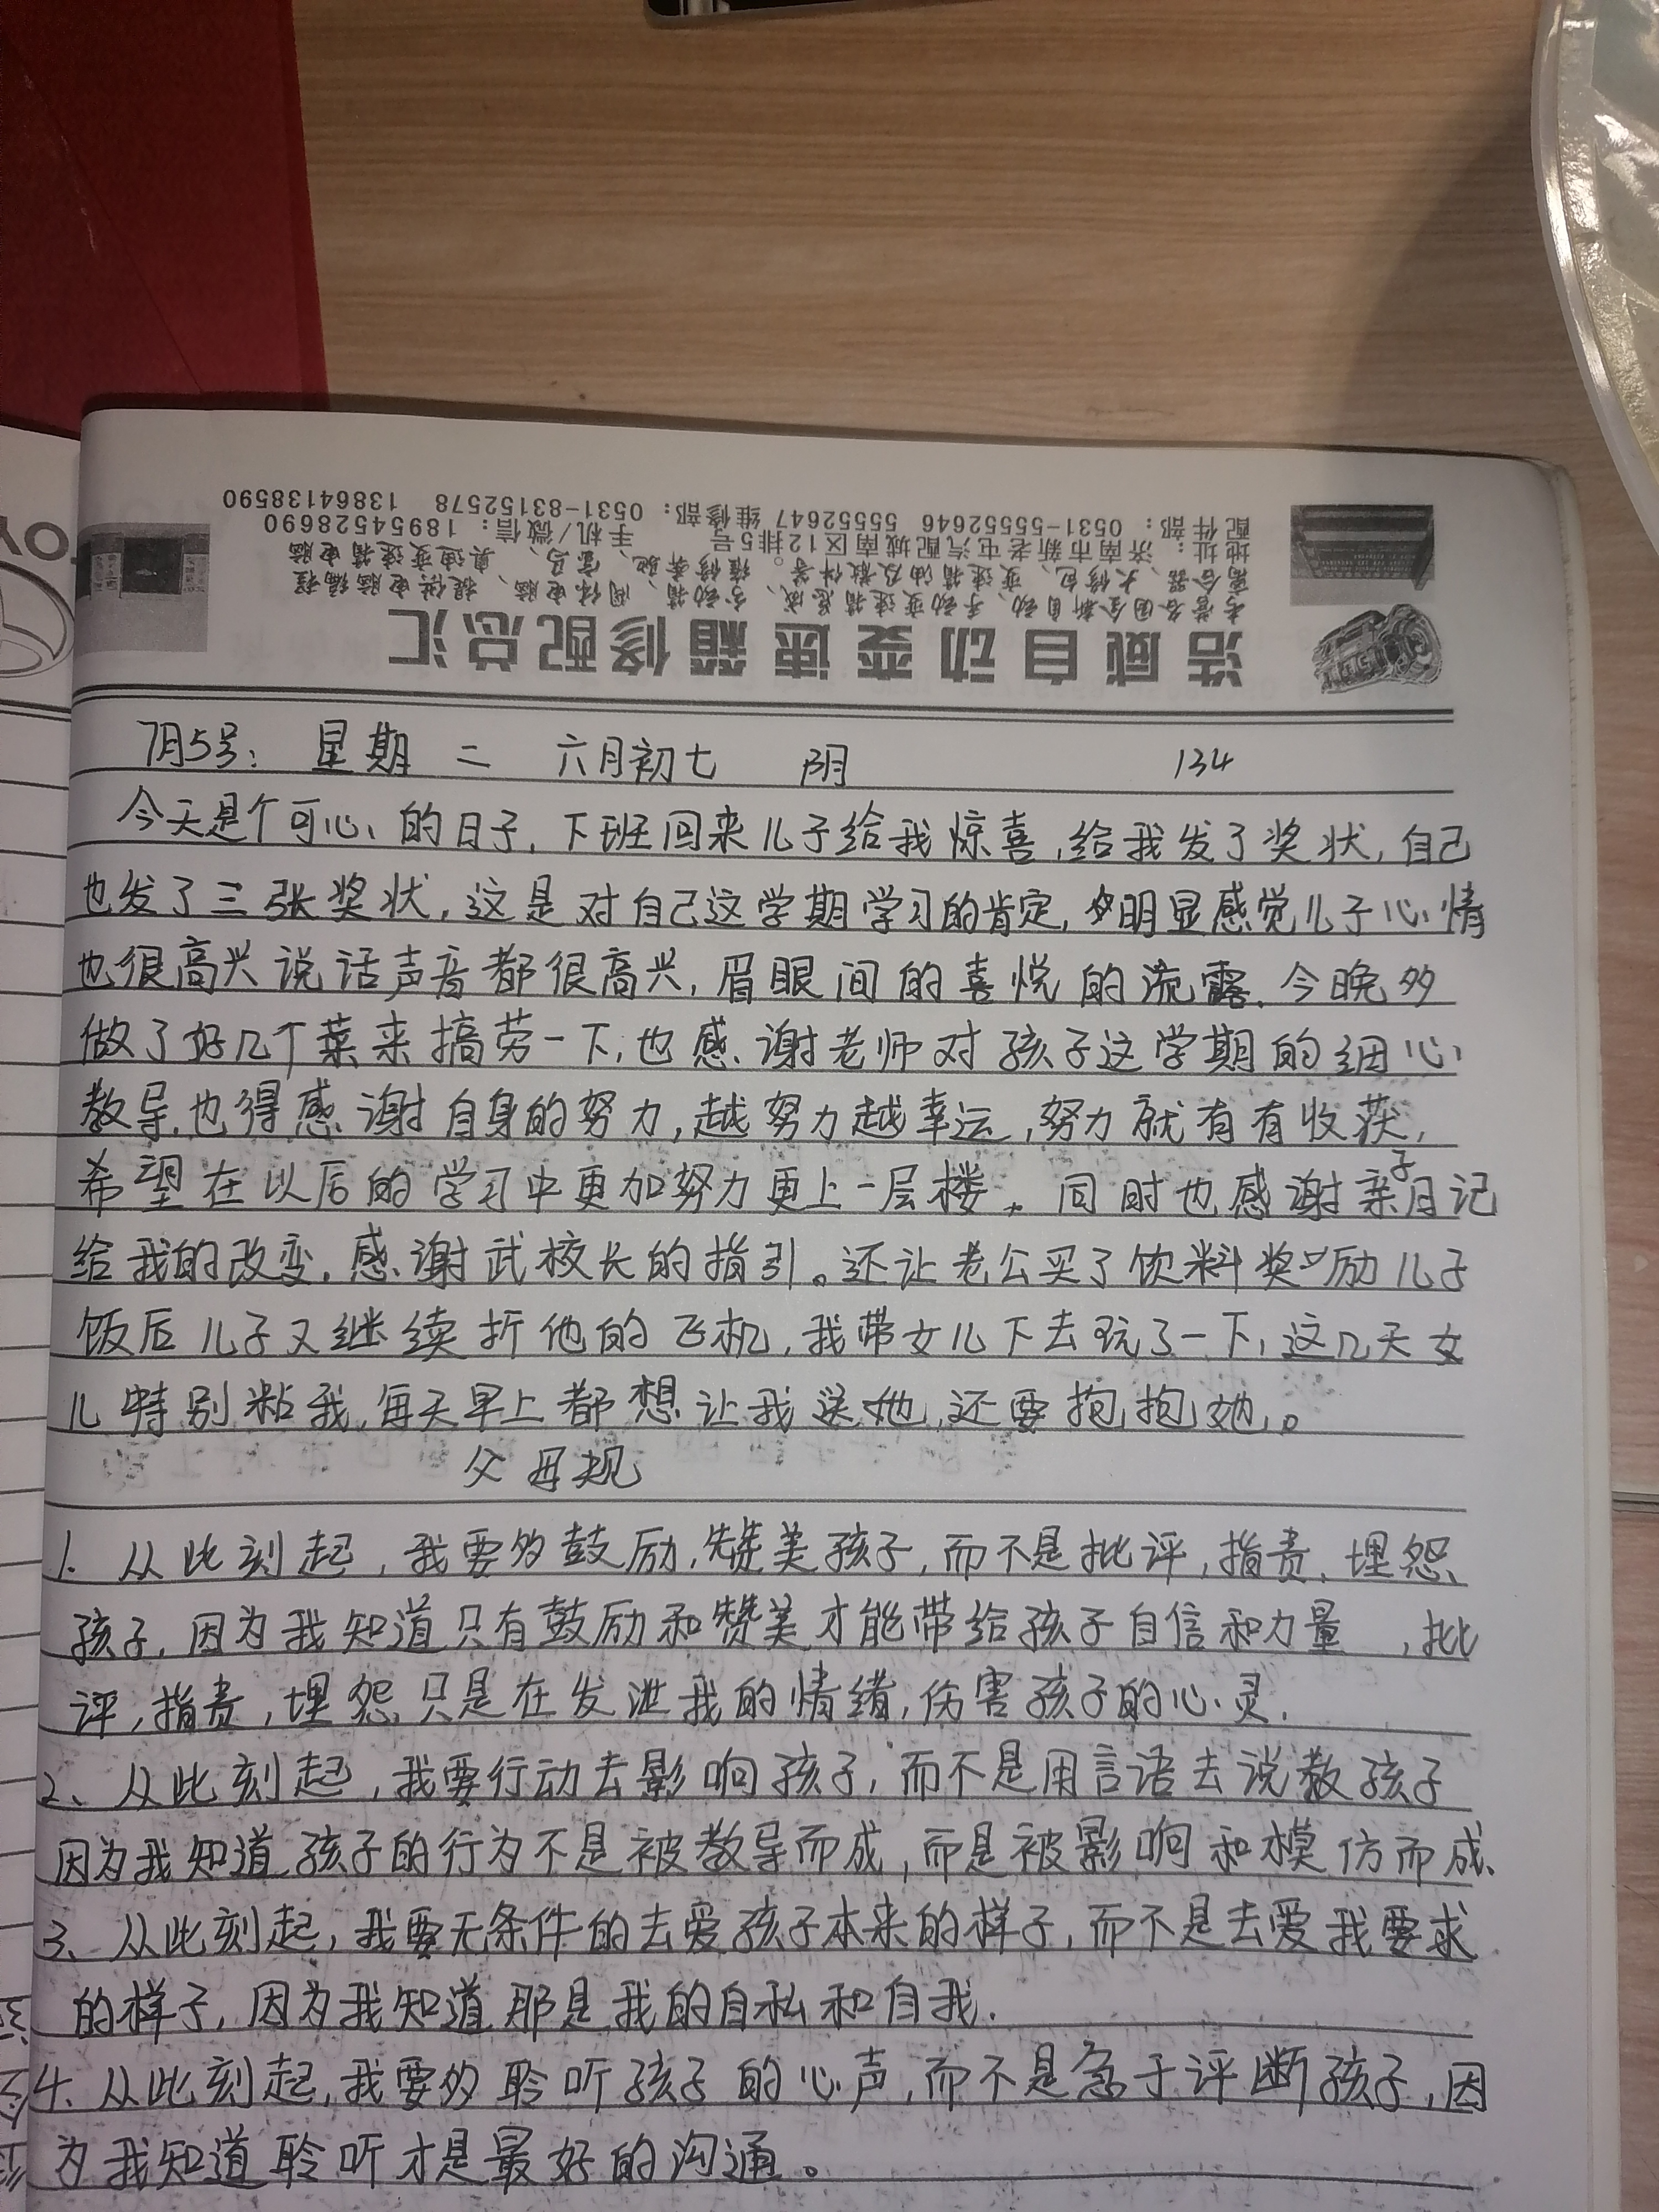 浩威自动变速箱修配总汇
专营各国全新自动、手动变速箱总成、分动箱、阀体电脑、提供电脑编程
离合器、大修包、变速箱油及散件等。维修奔驰、宝马、奥迪变速箱电脑
地址：济南市新老屯汽配城南区12排5号 手机/微信：18954528690
配件部：0531-55552646 55552647 维修部：0531-83152578 13864138590
7月5号： 星期二 六月初七 阴 134
今天是个可心的日子，下班回来儿子给我惊喜，给我发了奖状，自己
也发了三张奖状，这是对自己这学期学习的肯定，明显感觉儿子心情
也很高兴说话声音都很高兴，眉眼间的喜悦的流露、今晚多
做了好几个菜来搞劳一下，也感谢老师对孩子这学期的细心
教导，也得感谢自身的努力，越努力越幸运，努力就有有收获，
希望在以后的学习中更加努力更上一层楼。同时也感谢亲子日记
给我的改变，感谢武校长的指引。还让老公买了饮料奖励儿子
饭后儿子又继续折他的飞机，我带女儿下去玩了一下，这几天女
儿特别粘我，每天早上都想让我送她，还要抱抱她。
父母规
1、从此刻起，我要多鼓励，赞美孩子，而不是批评，指责、埋怨
孩子，因为我知道只有鼓励和赞美才能带给孩子自信和力量 ，批
评，指责，埋怨只是在发泄我的情绪，伤害孩子的心灵．
2、从此刻起，我要行动去影响孩子，而不是用言语去说教孩子
因为我知道孩子的行为不是被教导而成，而是被影响和模仿而成、
3、从此刻起，我要无条件的去爱孩子本来的样子，而不是去爱我要求
的样子，因为我知道那是我的自私和自我．
4、从此刻起，我要多聆听孩子的心声，而不是急于评断孩子，因
为我知道聆听才是最好的沟通。